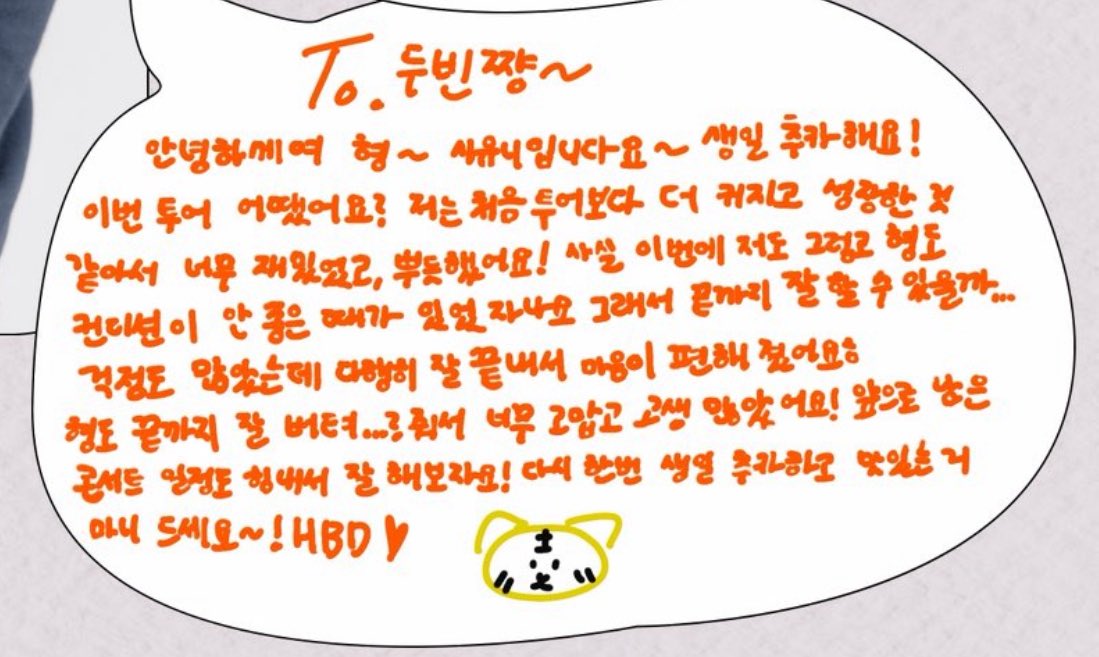 To. 두빈쨩~
안녕하세여 형~ 사유니입니다요~ 생일 추카해요!
이번 투어 어땠어요? 저는 처음 투어보다 더 커지고 성장한 것
같아서 너무 재밌었고, 뿌듯했어요! 사실 이번에 저도 그렇고 형도
컨디션이 안 좋은 때가 있었자나요 그래서 끝까지 잘 할 수 있을까...
걱정도 많았는데 다행히 잘 끝내서 마음이 편해졌어요ㅎ
형도 끝까지 잘 버텨...ㄹ줘서 너무 고맙고 고생 많았어요! 앞으로 남은
콘서트 일정도 힘내서 잘 해보자요! 다시 한번 생일 추카하고 맛있는거
마니 드세요~! HBD♥